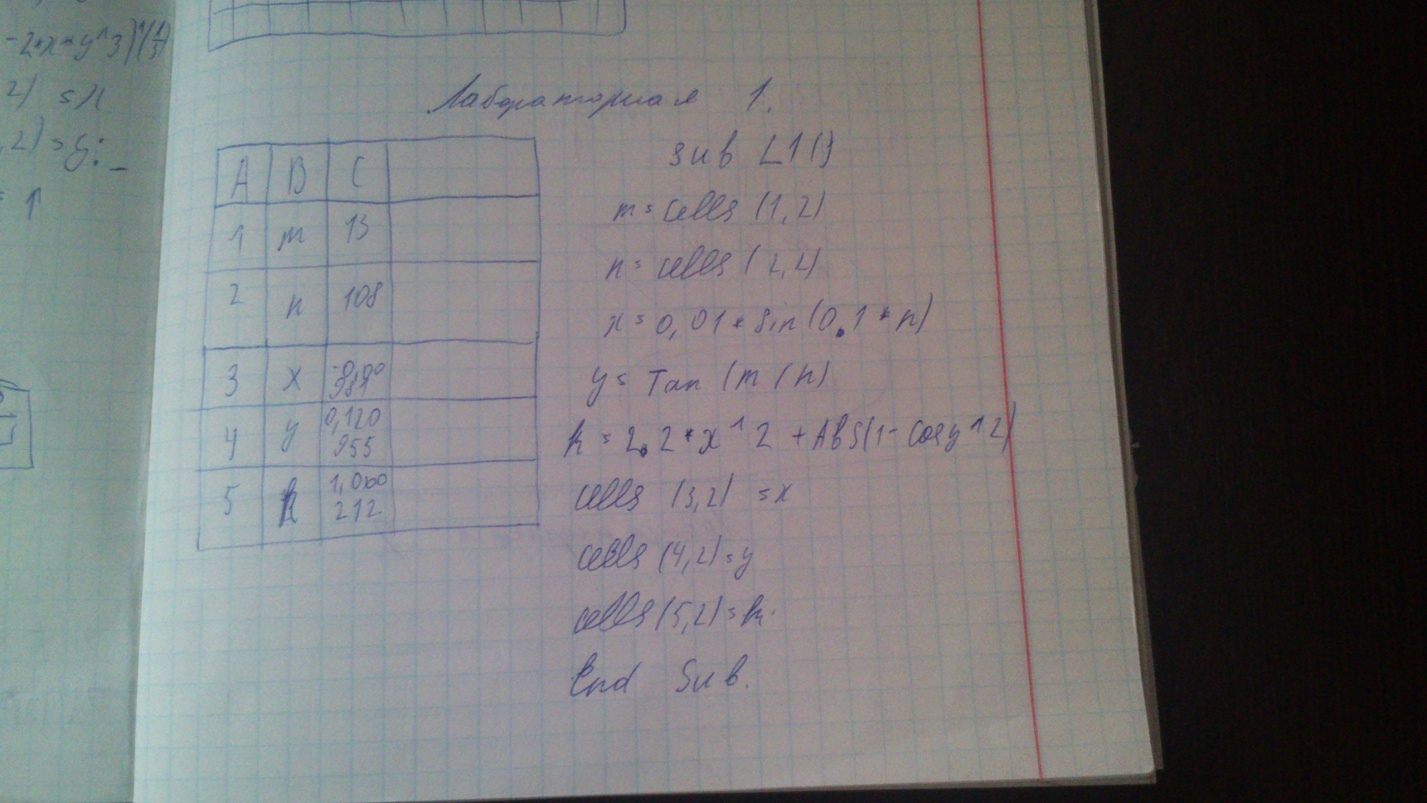 -2*x*y^3)^(1/3)
2) =x
,2)=y:_
= 1
Лабораторная 1.
A B C
1 m 13
2 n 108
3 x
4 y 0,120
955
5 k 1,000
212
Sub L1()
m=cells (1,2)
n=cells (2,2)
x=0,01*Sin(0.1*n)
y= Tan (m/n)
k=2.2*x^2 +ABS(1-Cosy^2)
cells (3,2) =x
cells (4,2)=y
cells (5,2)=k.
End Sub.